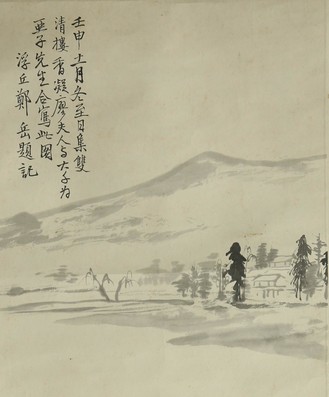 壬申十一月冬至日集雙
清樓香凝廖夫人与大子为
亞子先生合寫此圖
浮丘鄭岳題記